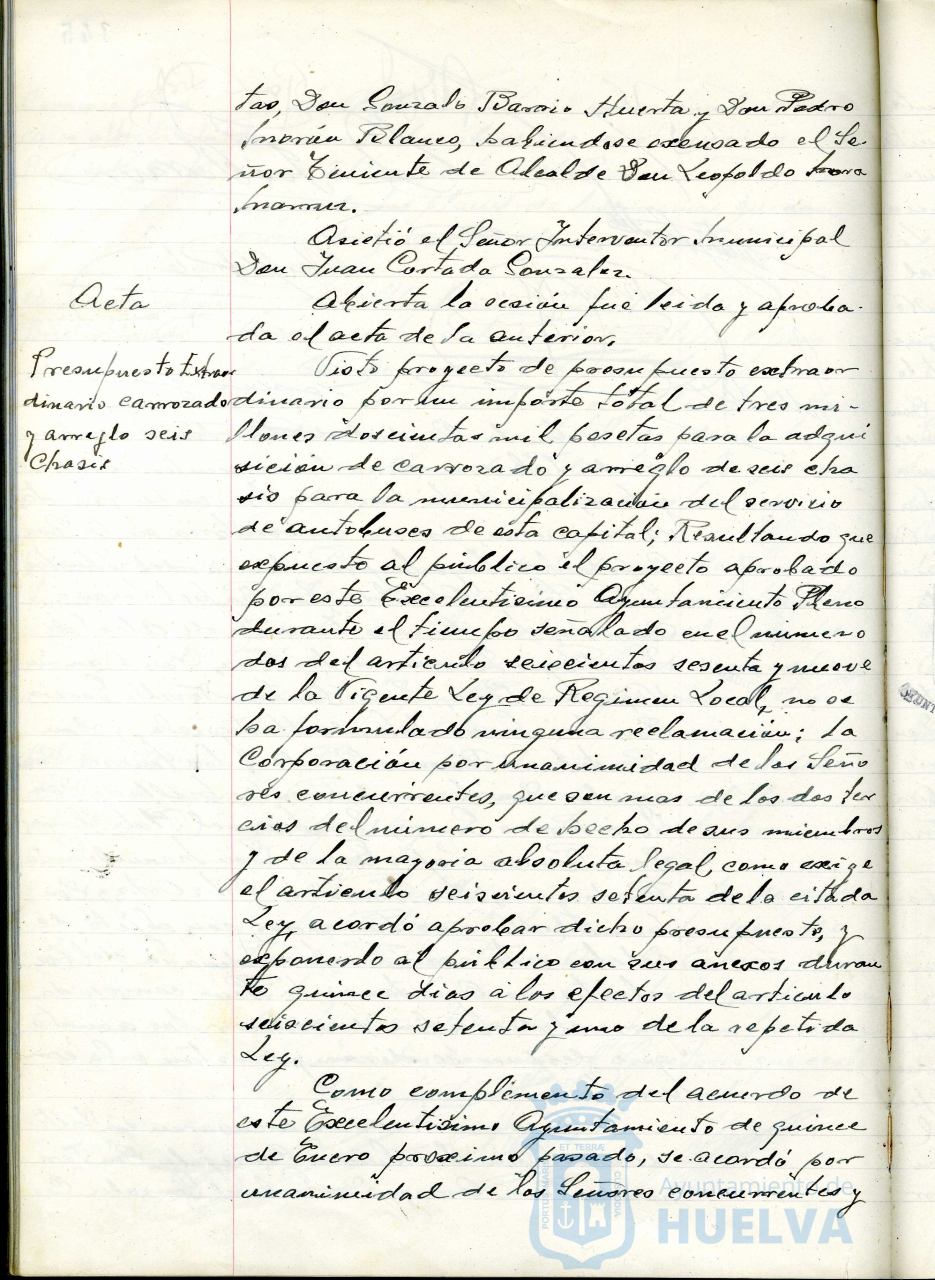 tas, Don Gonzalo Barrio Huerta y Don Pedro
Morán Blanco, habiendose excusado el Se-
ñor Teniente de Alcalde Don Leopoldo

Asistió el Señor Interventor Municipal
Don Juan Cortada Gonzalez.
Acta
Abierta la sesión fue leida y aproba-
da el acta de la anterior.
Presupuesto Extraor
dinario carrozado
y arreglo seis
Chasis
Visto proyecto de presupuesto extraor
dinario por un importe total de tres mi-
llones doscientas mil pesetas para la adqui
sición de carrozado y arreglo de seis cha
sis para la municipalización del servicio
de autobuses de esta capital; Resultando que
expuesto al público el proyecto aprobado
por este Excelentisimo Ayuntamiento Pleno
durante el tiempo señalado en el número
dos del articulo seiscientos sesenta y nueve
de la Vigente Ley de Regimen Local, no se
ha formulado ninguna reclamación; la
Corporación por unanimidad de los Seño
res concurrentes, que son mas de los dos ter
cios del número de hecho de sus miembros
y de la mayoria absoluta legal como exige
el articulo seiscientos setenta de la citada
Ley, acordó aprobar dicho presupuesto, y
exponerlo al público con sus anexos duran
te quince dias a los efectos del articulo
seiscientos setenta y uno de la repetida
Ley.
Como complemento del acuerdo de
este Excelentisimo Ayuntamiento de quince
de Enero proximo pasado, se acordó por
unanimidad de los Señores concurrentes y
Ayuntamiento de
HUELVA